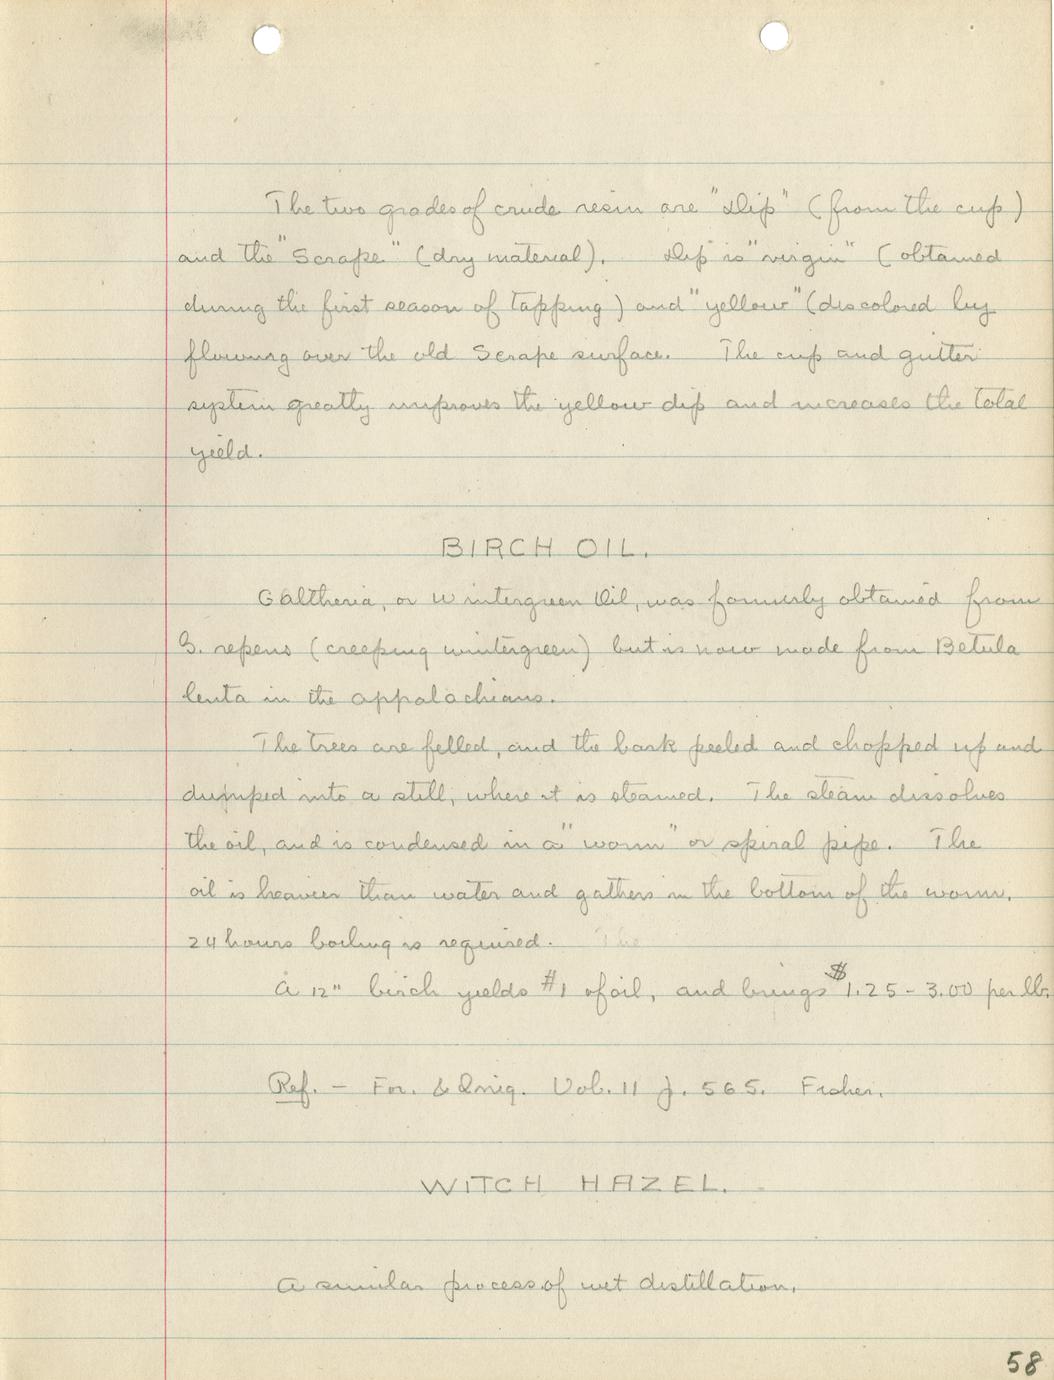 The two grades of crude resin are "Dip" (from the cup)
and the "Scrape" (dry material). Dip is "virgin" (obtained
during the first season of tapping) and "yellow" (discolored by
flowing over the old Scrape surface. The cup and gutter
system greatly improves the yellow dip and increases the total
yield.
BIRCH OIL.
Galtheria, or Wintergreen Oil, was formerly obtained from
G. repens (creeping wintergreen) but is now made from Betula
lenta in the appalachians.
The trees are felled, and the bark peeled and chopped up and
dumped into a still, where it is steamed. The steam dissolves
the oil, and is condensed in a "worm" or spiral pipe. The
oil is heavier than water and gathers in the bottom of the worm.
24 hours boiling is required. The
A 12" birch yields #1 of oil, and brings $1.25 - 3.00 per lb.
Ref. - For. & Vol. 11 p. 565. Fisher.
WITCH HAZEL.
A similar process of wet distillation.
58